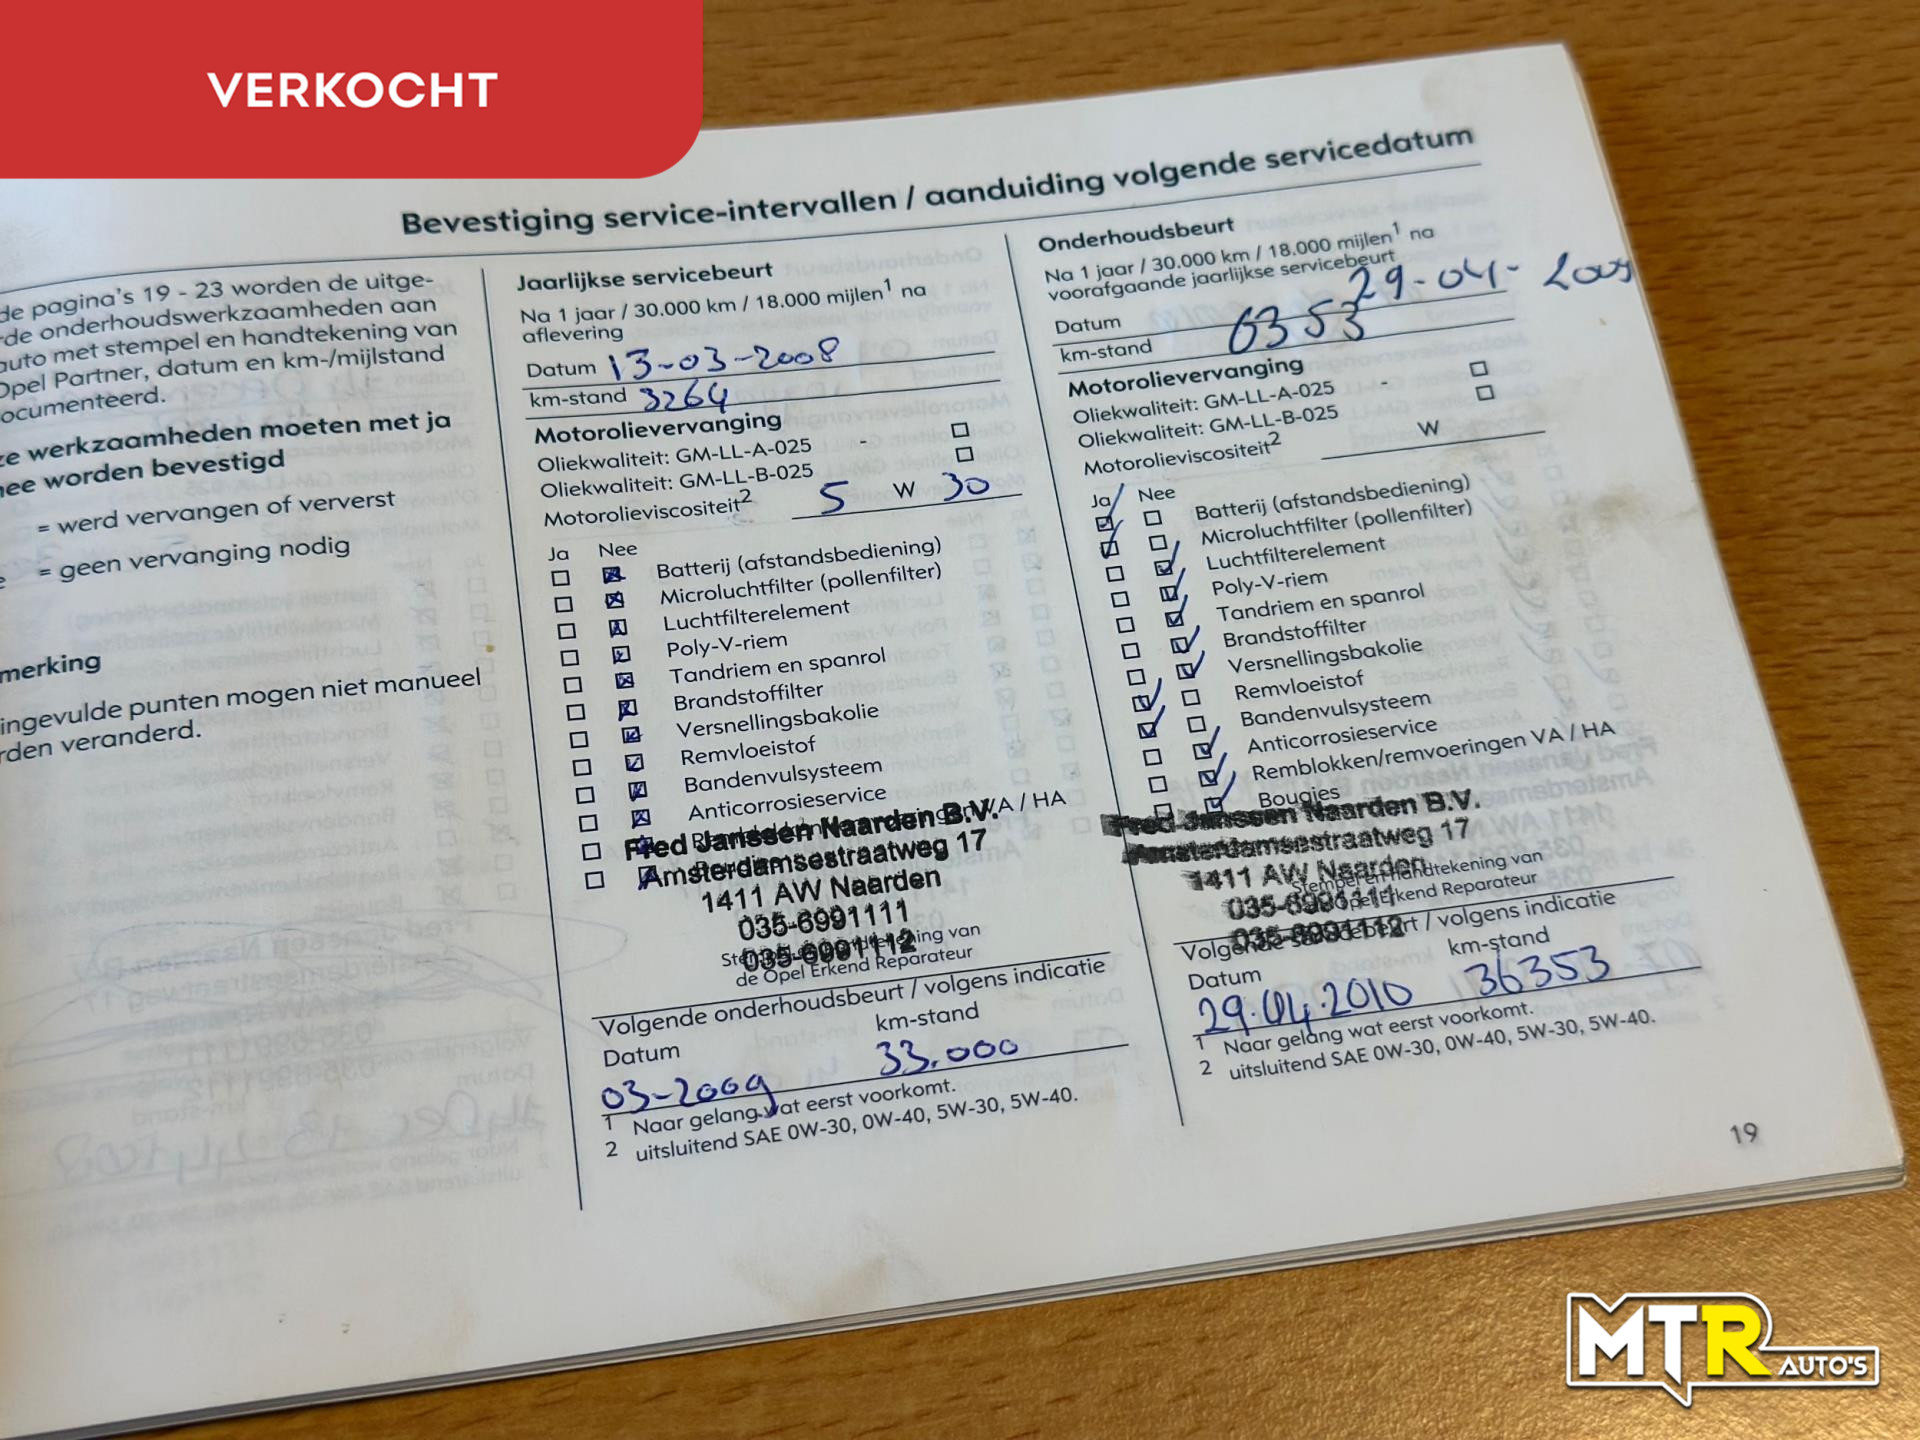 VERKOCHT
Bevestiging service-intervallen / aanduiding volgende servicedatum
de pagina's 19 - 23 worden de uitge-
de onderhoudswerkzaamheden aan
auto met stempel en handtekening van
Opel Partner, datum en km-/mijlstand
ocumenteerd.
ze werkzaamheden moeten met ja
nee worden bevestigd
= werd vervangen of ververst
e = geen vervanging nodig
merking
ingevulde punten mogen niet manueel
rden veranderd.
Jaarlijkse servicebeurt
Na 1 jaar / 30.000 km / 18.000 mijlen1 na
aflevering
Datum 13-03-2008
km-stand 3264
Motorolievervanging
Oliekwaliteit: GM-LL-A-025 -
Oliekwaliteit: GM-LL-B-025
Motorolieviscositeit2 5 W 30
Ja Nee
Batterij (afstandsbediening)
Microluchtfilter (pollenfilter)
Luchtfilterelement
Poly-V-riem
Tandriem en spanrol
Brandstoffilter
Versnellingsbakolie
Remvloeistof
Bandenvulsysteem
Anticorrosieservice
VA / HA
Fred Janssen Naarden B.V.
Amsterdamsestraatweg 17
1411 AW Naarden
035-6991111
035-6991112
Stempel en handtekening van
de Opel Erkend Reparateur
Volgende onderhoudsbeurt / volgens indicatie
Datum km-stand
03-2009 33.000
1 Naar gelang wat eerst voorkomt.
2 uitsluitend SAE 0W-30, 0W-40, 5W-30, 5W-40.
Onderhoudsbeurt
Na 1 jaar / 30.000 km / 18.000 mijlen1 na
voorafgaande jaarlijkse servicebeurt
Datum 29-04-2009
km-stand 6353
Motorolievervanging
Oliekwaliteit: GM-LL-A-025 -
Oliekwaliteit: GM-LL-B-025
Motorolieviscositeit2 W
Ja Nee
Batterij (afstandsbediening)
Microluchtfilter (pollenfilter)
Luchtfilterelement
Poly-V-riem
Tandriem en spanrol
Brandstoffilter
Versnellingsbakolie
Remvloeistof
Bandenvulsysteem
Anticorrosieservice
Remblokken/remvoeringen VA / HA
Bougies
Fred Janssen Naarden B.V.
Amsterdamsestraatweg 17
1411 AW Naarden
035-6991111
035-6991112
Stempel en handtekening van
de Opel Erkend Reparateur
Volgende servicebeurt / volgens indicatie
Datum km-stand
29.04.2010 36353
1 Naar gelang wat eerst voorkomt.
2 uitsluitend SAE 0W-30, 0W-40, 5W-30, 5W-40.
19
MTR AUTO'S